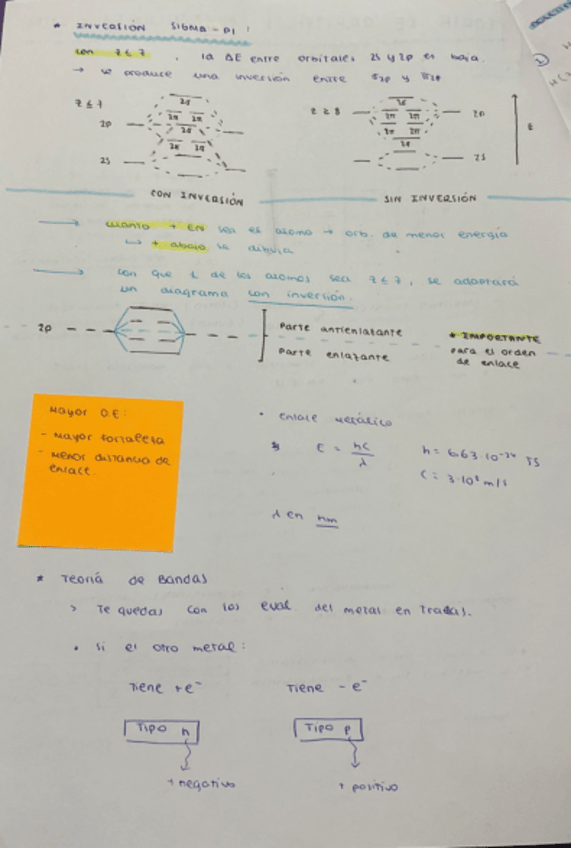 * INVERSIÓN SIGMA - PI :
con Z ≤ 7, la ΔE entre orbitales 2s y 2p es baja.
→ se produce una inversión entre σ2p y π2p
Z ≤ 7
2p
2s
2σ
2π 2π
2σ
2π 2π
CON INVERSIÓN
Z ≥ 8
2σ
2π 2π
2π 2π
2σ
2p
2s
E
SIN INVERSIÓN
→ cuanto + EN sea el átomo → orb. de menor energía
↳ + abajo se dibuja
→ con que 1 de los átomos sea Z ≤ 7, se adaptará
un diagrama con inversión.
2p
Parte antienlazante
Parte enlazante
* IMPORTANTE
para el orden
de enlace
Mayor O.E:
- Mayor fortaleza
- Menor distancia de
enlace.
• Enlace metálico
* E = hc/λ
h = 6.63·10⁻³⁴ JS
C = 3·10⁸ m/s
λ en nm
* Teoría de Bandas
> Te quedas con los eval del metal en Tradas.
• Si el otro metal:
Tiene +e⁻
Tiene - e⁻
TIPO n
TIPO p
+ negativo
+ positivo